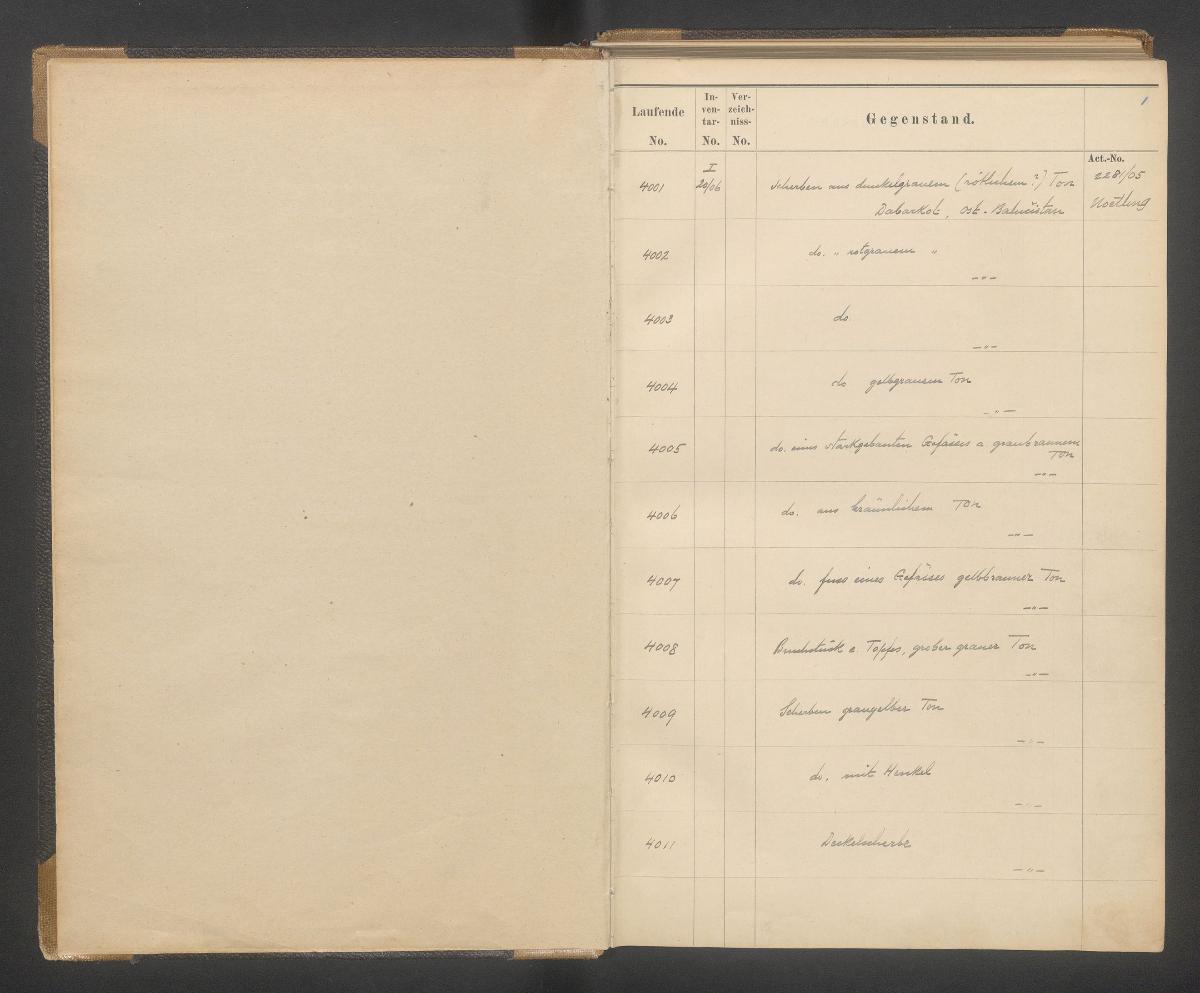 1
Laufende No. In-ven-tar- No. Ver-zeich-niss- No. Gegenstand.
Act.-No.
4001 I 20/06 Scherben aus dunkelgrauem (rötlichem?) Ton 2281/05
Dabarkot, Ost-Balučistan Noetling
4002 do. „ rotgrauem „
—„—
4003 do
—„—
4004 do gelbgrauem Ton
—„—
4005 do. eines starkgebauten Gefässes a graubraunem
Ton
—„—
4006 do. aus bräunlichem Ton
—„—
4007 do. fuss eines Gefässes gelbbrauner Ton
—„—
4008 Bruchstück e. Topfes, grober grauer Ton
—„—
4009 Scherben graugelber Ton
—„—
4010 do. mit Henkel
—„—
4011 Deckelscherbe
—„—